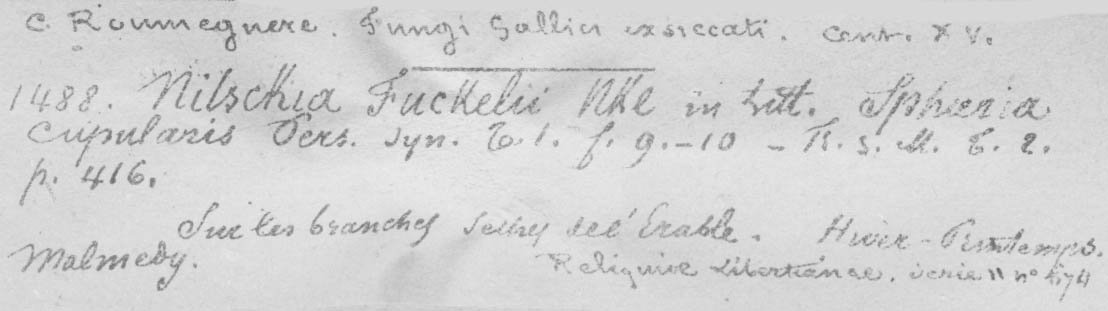 C. Roumeguere. Fungi Gallici exsiccati. Cent. XV.
1488. Nitschia Fuckelii Nke in Litt. Sphæria
cupularis Pers. Syn. T. 1. f. 9.-10 - K. S. M. T. 2.
p. 416.
Sur les branches seches de l'Erable. Hiver-Printemps.
Malmedy.
Reliquiæ Libertianae. serie II nº